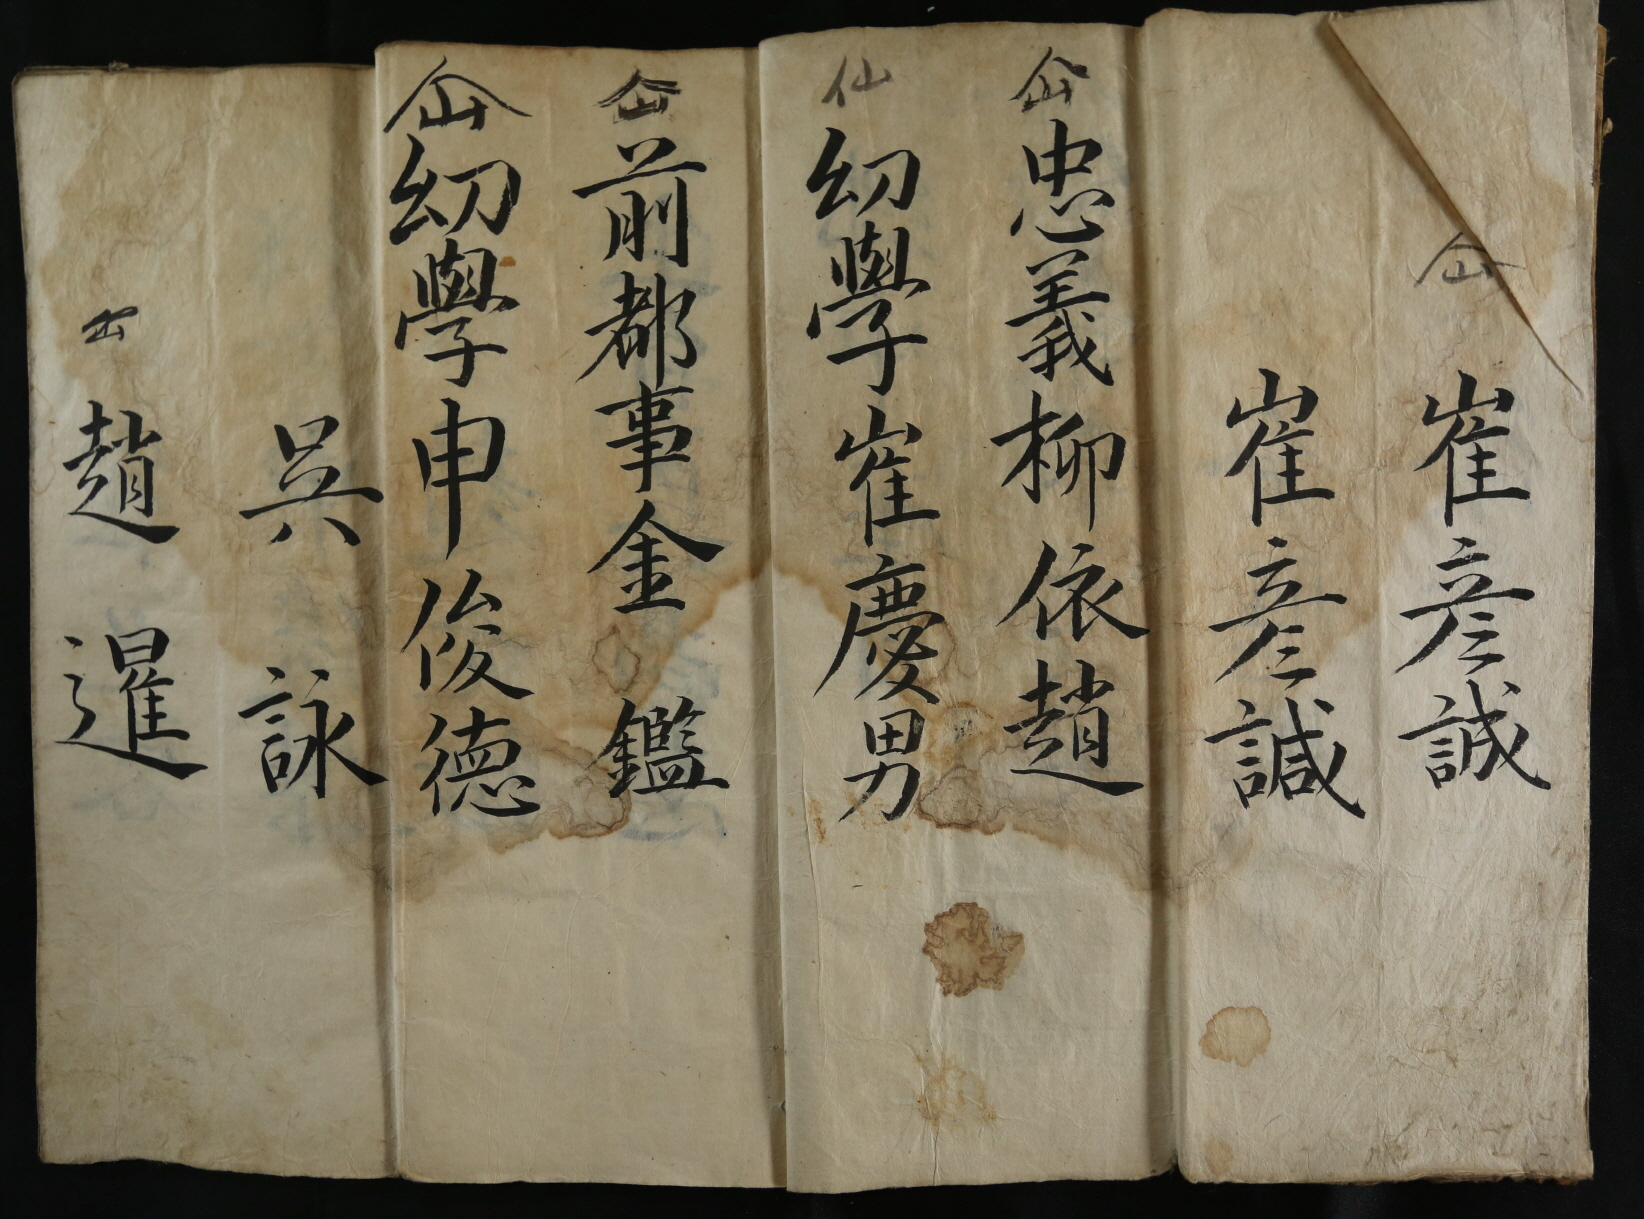 仚
崔彦誠
崔彦諴
仚
忠義柳依趙
仙
幼學崔慶男
仚
前都事金鑑
仚
幼學申俊德
吳詠
趙暹